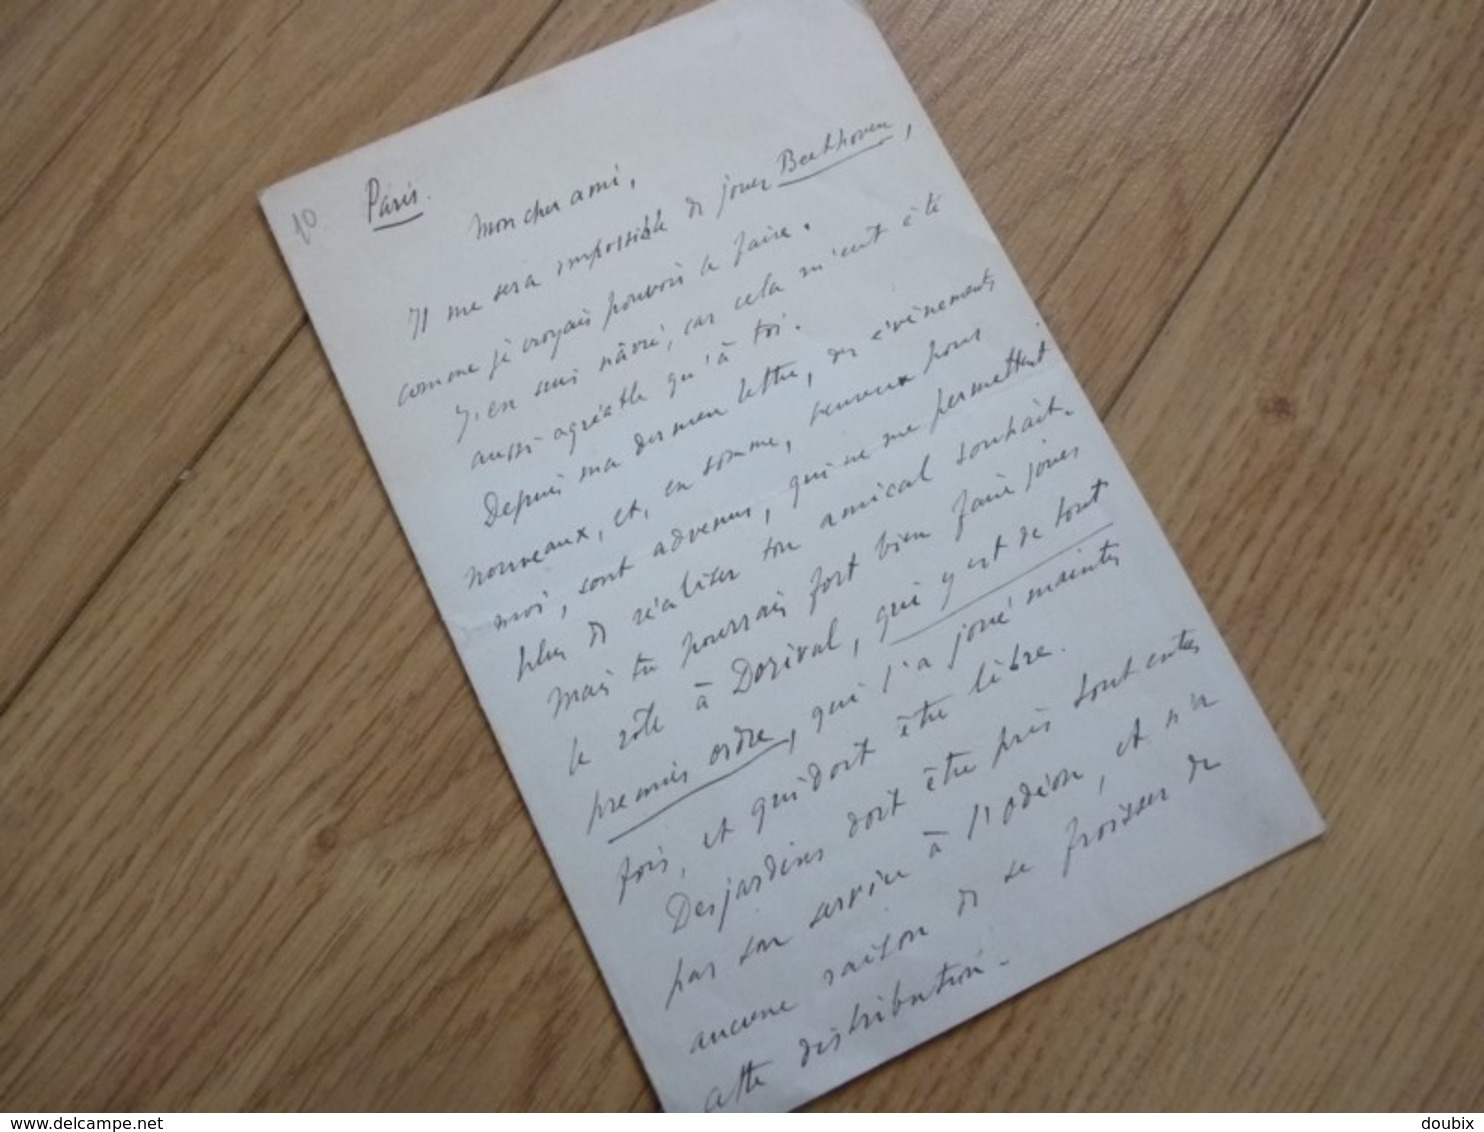 10
Paris.
Mon cher ami,
Il me sera impossible de jouer Beethoven,
comme je croyais pouvoir le faire.
J'en suis nâvré, car cela m'eut été
aussi agréable qu'à toi.
Depuis ma dernière lettre, des évènements
nouveaux, et, en somme, heureux pour
moi, sont advenus, qui ne me permettent
plus de réaliser ton amical souhait.
Mais tu pourrais fort bien faire jouer
le rôle à Dorival, qui y est de tout
premier ordre, qui l'a joué maintes
fois, et qui doit être libre.
Desjardins doit être pris tout entier
par son service à l'Odéon, et n'a
aucune raison de se froisser de
cette distribution.
http://www.delcampe.net
doubix